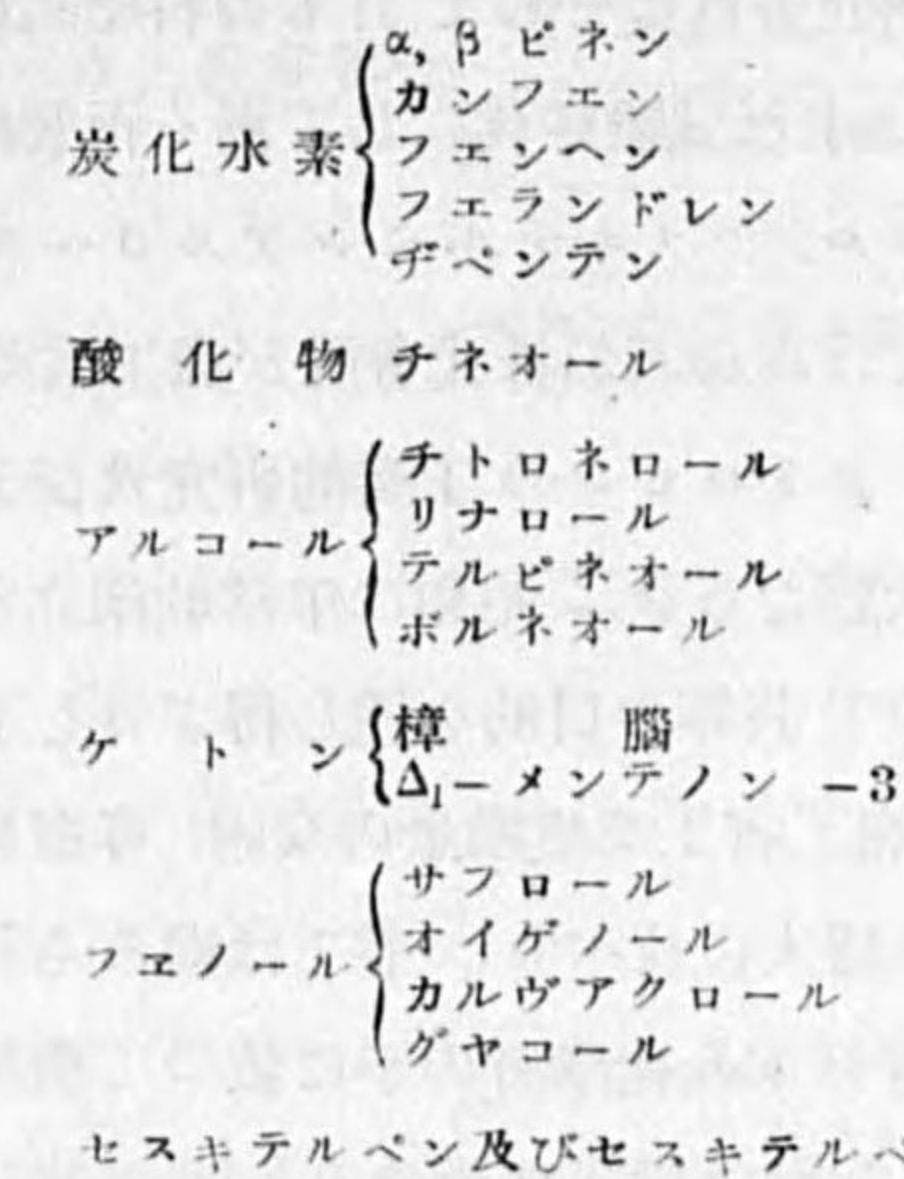 炭化水素
α, β ピネン
カンフエン
フエンヘン
フエランドレン
ヂペンテン
酸化物 チネオール
アルコール
チトロネロール
リナロール
テルピネオール
ボルネオール
ケトン
樟腦
Δ₁−メンテノン −3
フエノール
サフロール
オイゲノール
カルヴアクロール
グヤコール
セスキテルペン及びセスキテルペ